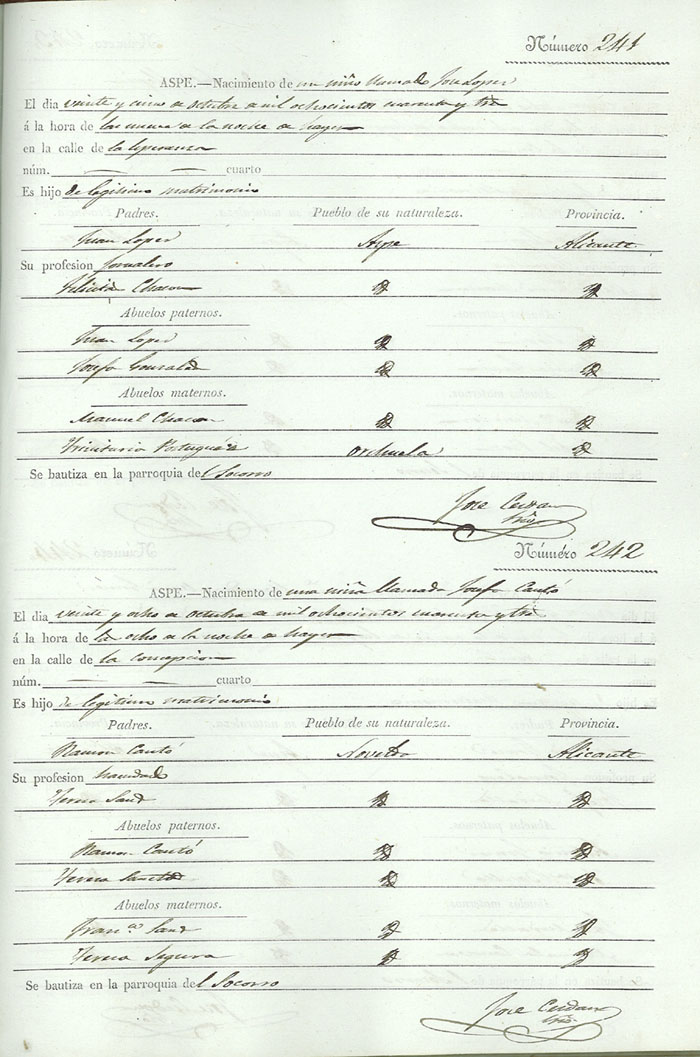 Número 241
ASPE.—Nacimiento de un niño llamado Jose Lopez
El dia veinte y cinco de octubre de mil ochocientos cuarenta y tres
á la hora de las nueve de la noche de hayer
en la calle de la Esperanza
núm. — — cuarto
Es hijo de legitimo matrimonio
Padres. Pueblo de su naturaleza. Provincia.
Juan Lopez Aspe Alicante
Su profesion Jornalero
Felicia Chacon
Abuelos paternos.
Juan Lopez
Josefa Gonzalez
Abuelos maternos.
Manuel Chacon
Trinitaria Portugues Orihuela
Se bautiza en la parroquia del Socorro
Jose Cerdan
Número 242
ASPE.—Nacimiento de una niña llamada Josefa Cantó
El dia veinte y ocho de octubre de mil ochocientos cuarenta y tres
á la hora de la ocho de la noche de hayer
en la calle de la Concepcion
núm. — — cuarto
Es hijo de legitimo matrimonio
Padres. Pueblo de su naturaleza. Provincia.
Ramon Cantó Novelda Alicante
Su profesion
Teresa Sand
Abuelos paternos.
Ramon Cantó
Teresa
Abuelos maternos.
Fran.co Sand
Teresa Segura
Se bautiza en la parroquia del Socorro
Jose Cerdan